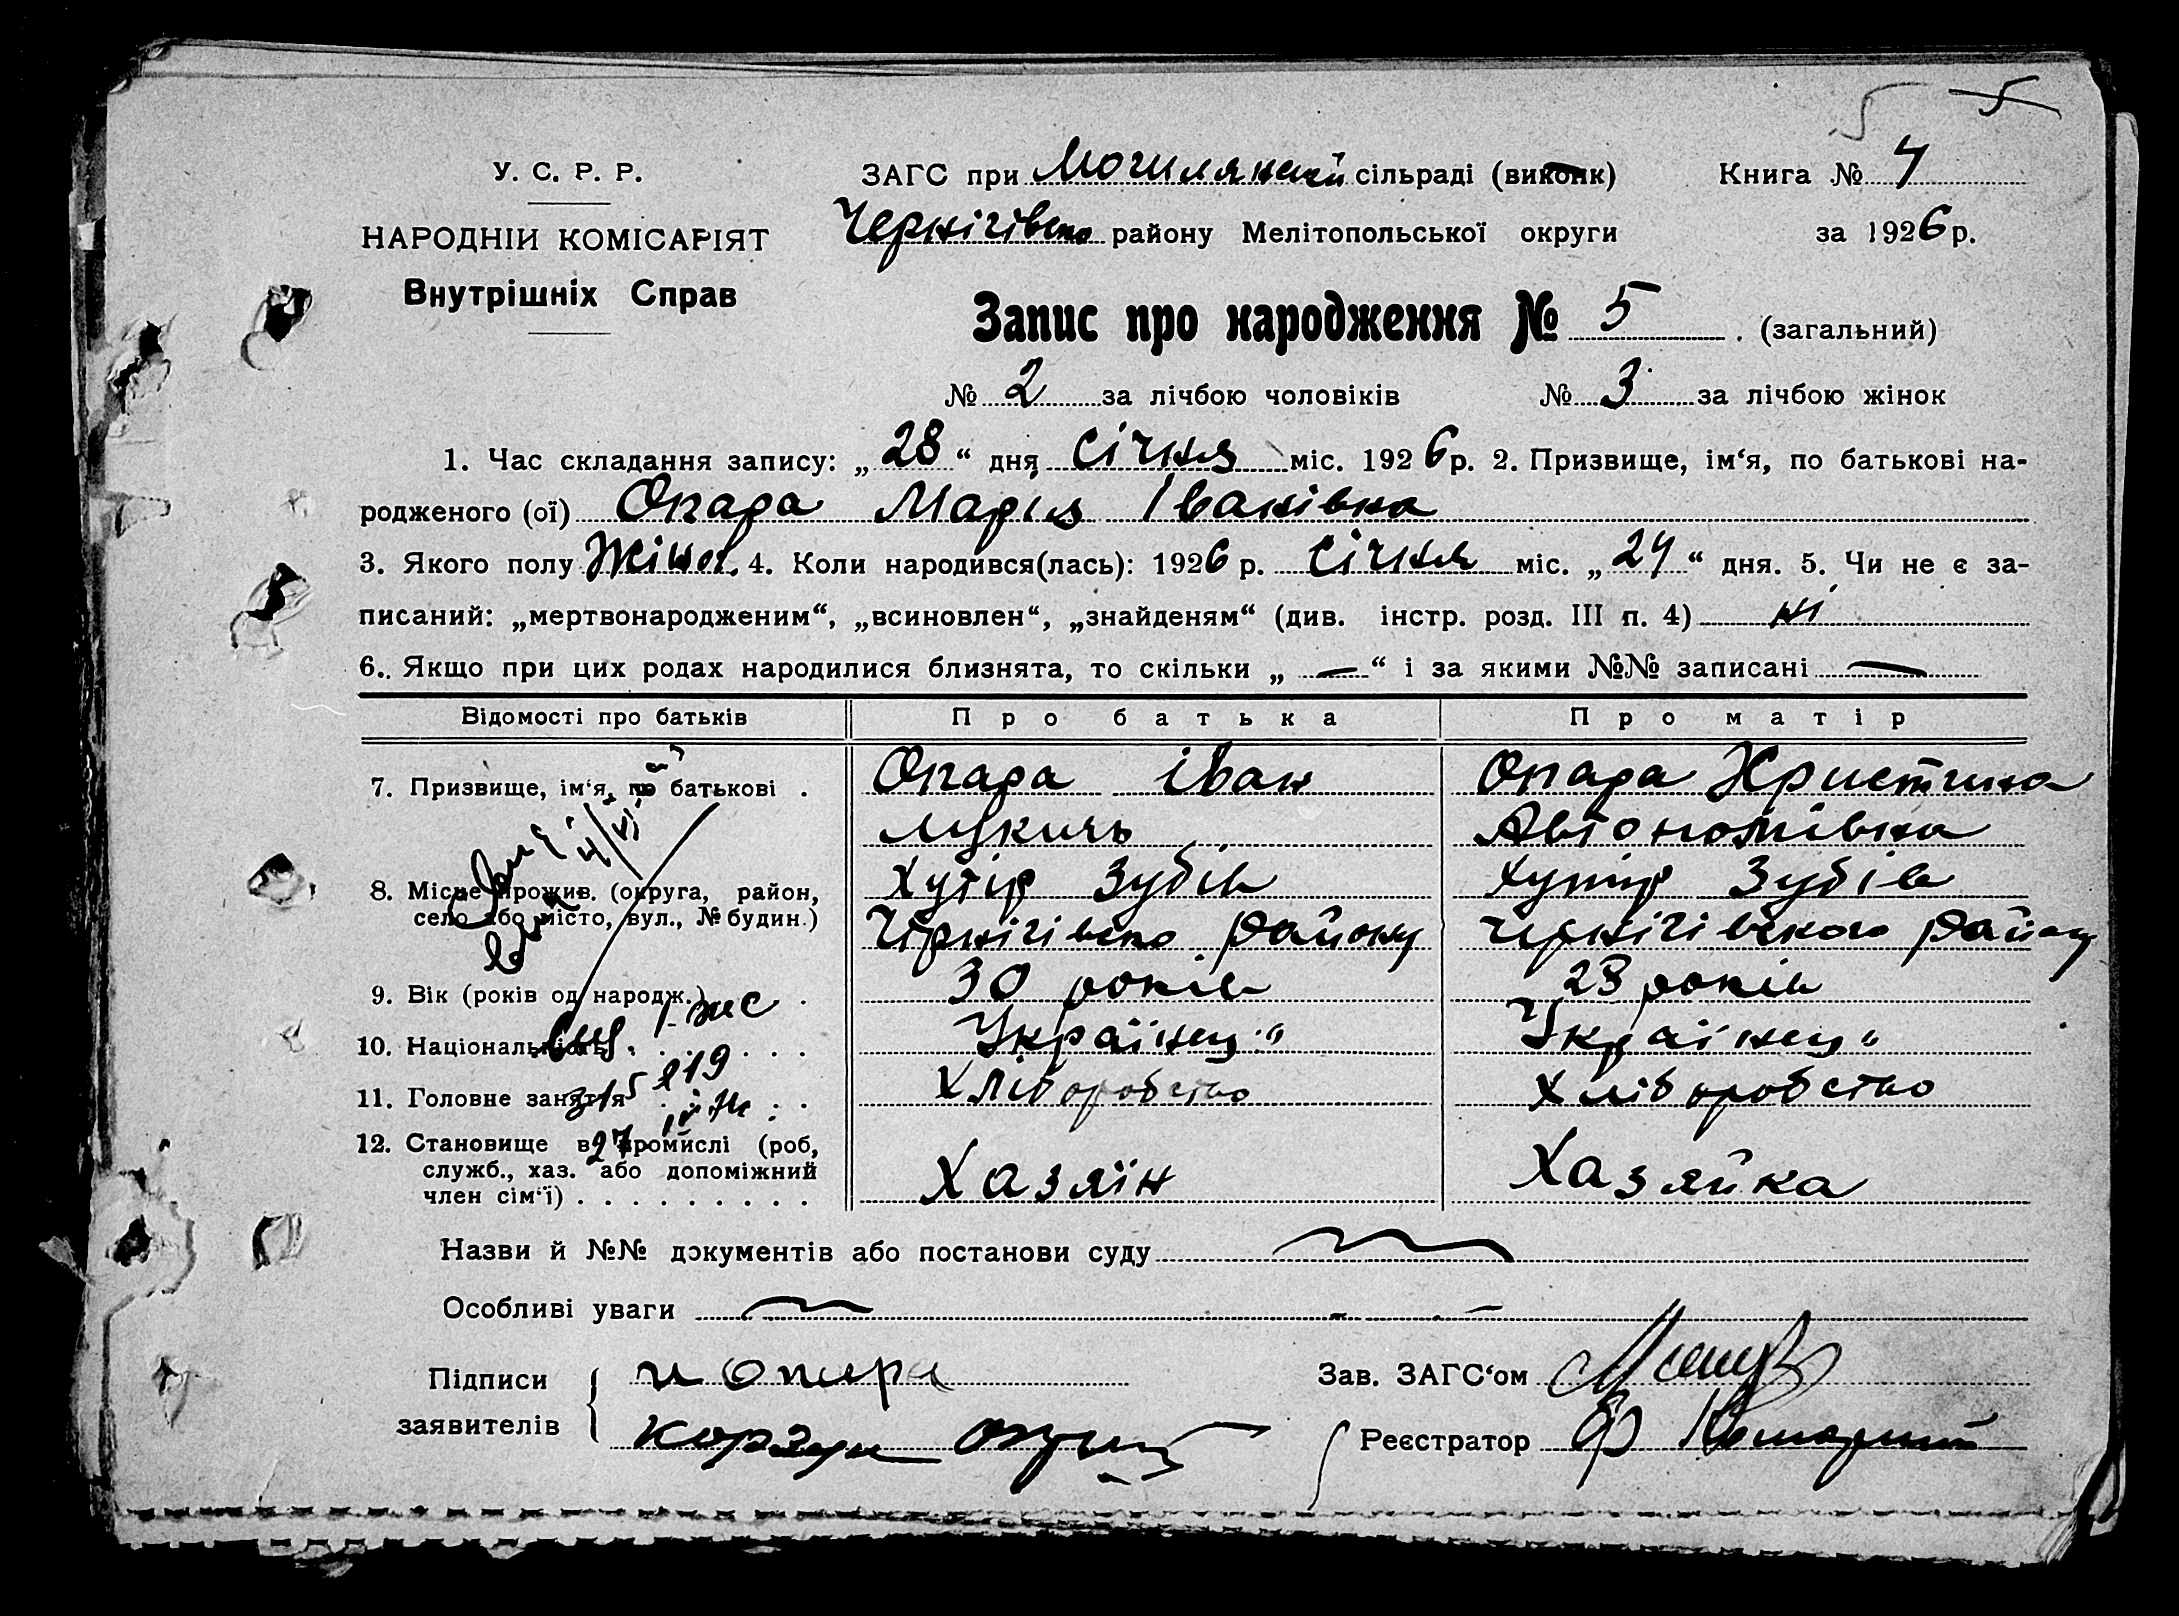 5 5
У. С. Р. Р.
НАРОДНІЙ КОМІСАРІЯТ
Внутрішніх Справ
ЗАГС при Могилянській сільраді (виконк)
Чернігівсько району Мелітопольської округи
Книга № 4
за 1926 р.
Запис про народження № 5 . (загальний)
№ 2 за лічбою чоловіків № 3 за лічбою жінок
1. Час складання запису: „28“ дня січня міс. 1926 р. 2. Призвище, ім‘я, по батькові на-
родженого (ої) Опара Марія Іванівна
3. Якого полу Жіноч. 4. Коли народився(лась): 1926 р. січня міс. „24“ дня. 5. Чи не є за-
писаний: „мертвонародженим“, „всиновлен“, „знайденям“ (див. інстр. розд. III п. 4) ні
6.. Якщо при цих родах народилися близнята, то скільки „ — “ і за якими №№ записані —
Відомості про батьків Про батька Про матір
7. Призвище, ім‘я, по батькові . Опара Іван Опара Христина
Лукичь Автономівна
8. Місце прожив. (округа, район, Хутір Зубів Хутір Зубів
село або місто, вул., № будин.) Чернігівсько району Чернігівського району
9. Вік (років од народж.) . 30 років 23 років
10. Національність . . . . . Українец" Українец"
11. Головне заняття . . . . Хліборобство Хліборобство
12. Становище в промислі (роб,
служб., хаз. або допоміжний
член сім‘ї) . . . . . . . . . Хазяїн Хазяйка
Назви й №№ документів або постанови суду
Особливі уваги
Підписи
заявителів
и опара
корзун
Зав. ЗАГС‘ом
Реєстратор